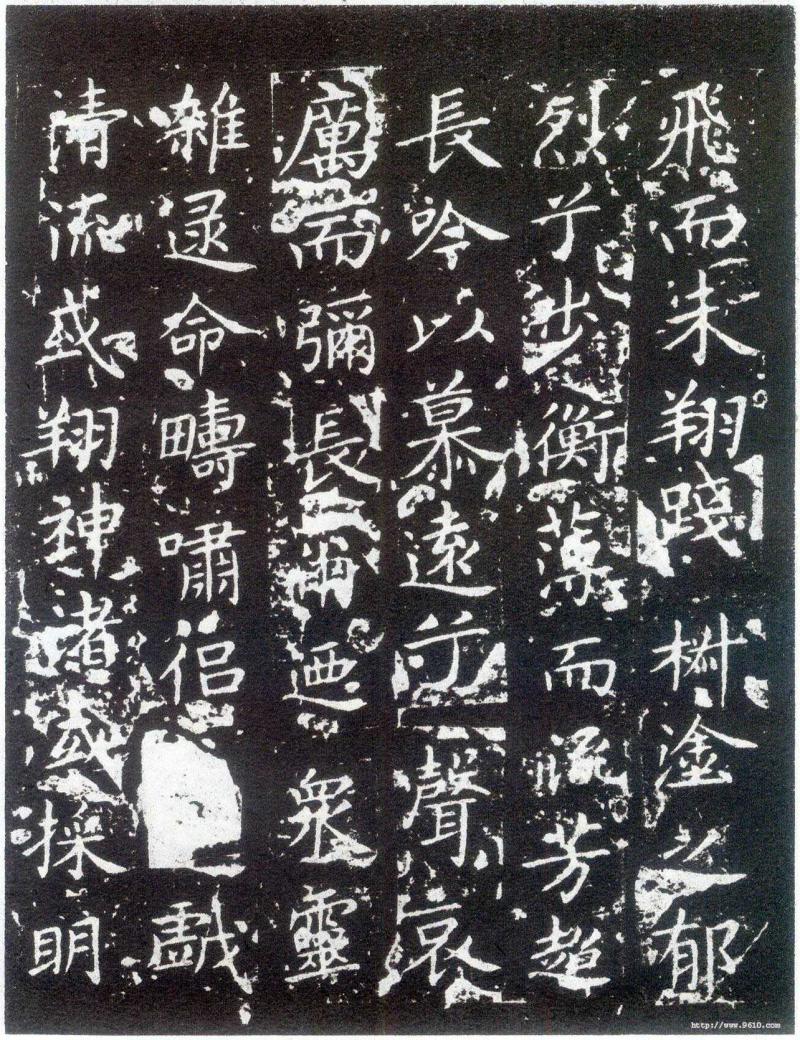 飛而未翔踐椒塗之郁
烈兮步衡薄而流芳超
長吟以慕遠兮聲哀
厲而彌長爾迺衆靈
雜遝命疇嘯侶戲
清流或翔神渚或採明
http://www.9610.com